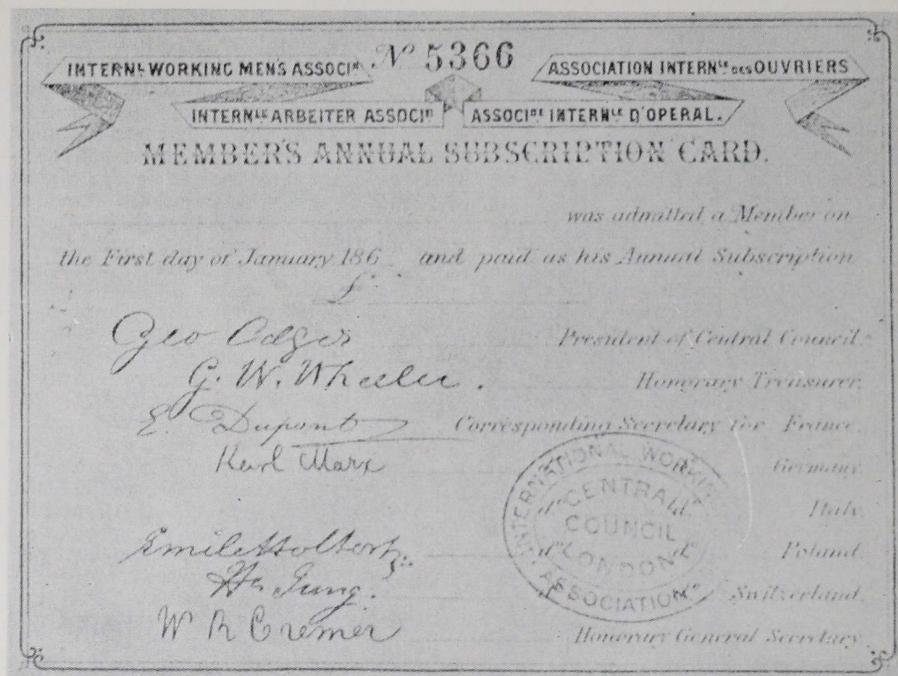 Nº 5366
INTERNL WORKING MEN'S ASSOCIN
ASSOCIATION INTERNLE DES OUVRIERS
INTERNLE ARBEITER ASSOCIN
ASSOCINE INTERNLE D'OPERAI.
MEMBER'S ANNUAL SUBSCRIPTION CARD.
was admitted a Member on
the First day of January 186 and paid as his Annual Subscription
£
Geo Odger President of Central Council.
G. W. Wheeler. Honorary Treasurer.
E. Dupont Corresponding Secretary for France.
Karl Marx Germany.
Italy.
Emile Holtorp Poland.
Hn Jung. Switzerland.
W R Cremer Honorary General Secretary.
INTERNATIONAL WORKING
ASSOCIATION
CENTRAL
COUNCIL
LONDON